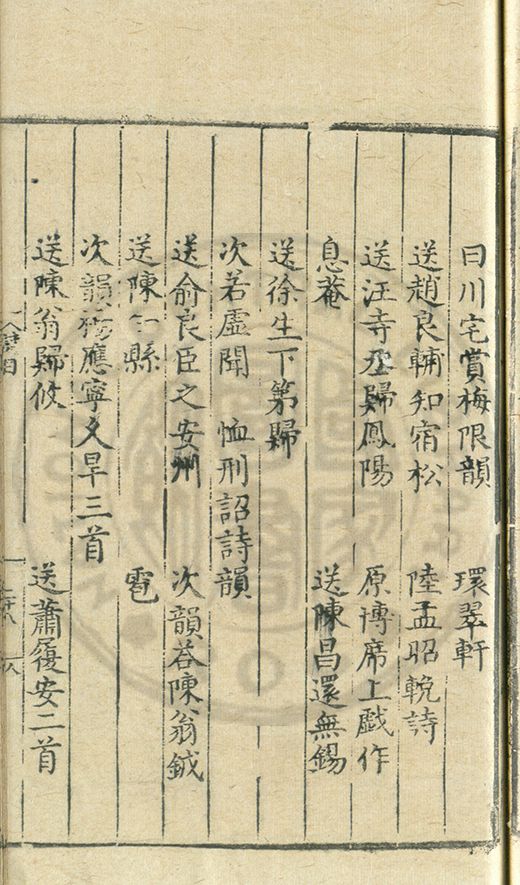 曰川宅賞梅限韻 環翠軒
送趙良輔知宿松 陸孟昭輓詩
送汪寺丞歸鳳陽 原博席上戱作
息菴 送陳昌還無錫
送徐生下第歸
次若虛聞 恤刑詔詩韻
送俞良臣之安州 次韻荅陳翁鉞
送陳仁縣 雹
次韻楊應寧久旱三首
送陳翁歸攸 送蕭履安二首